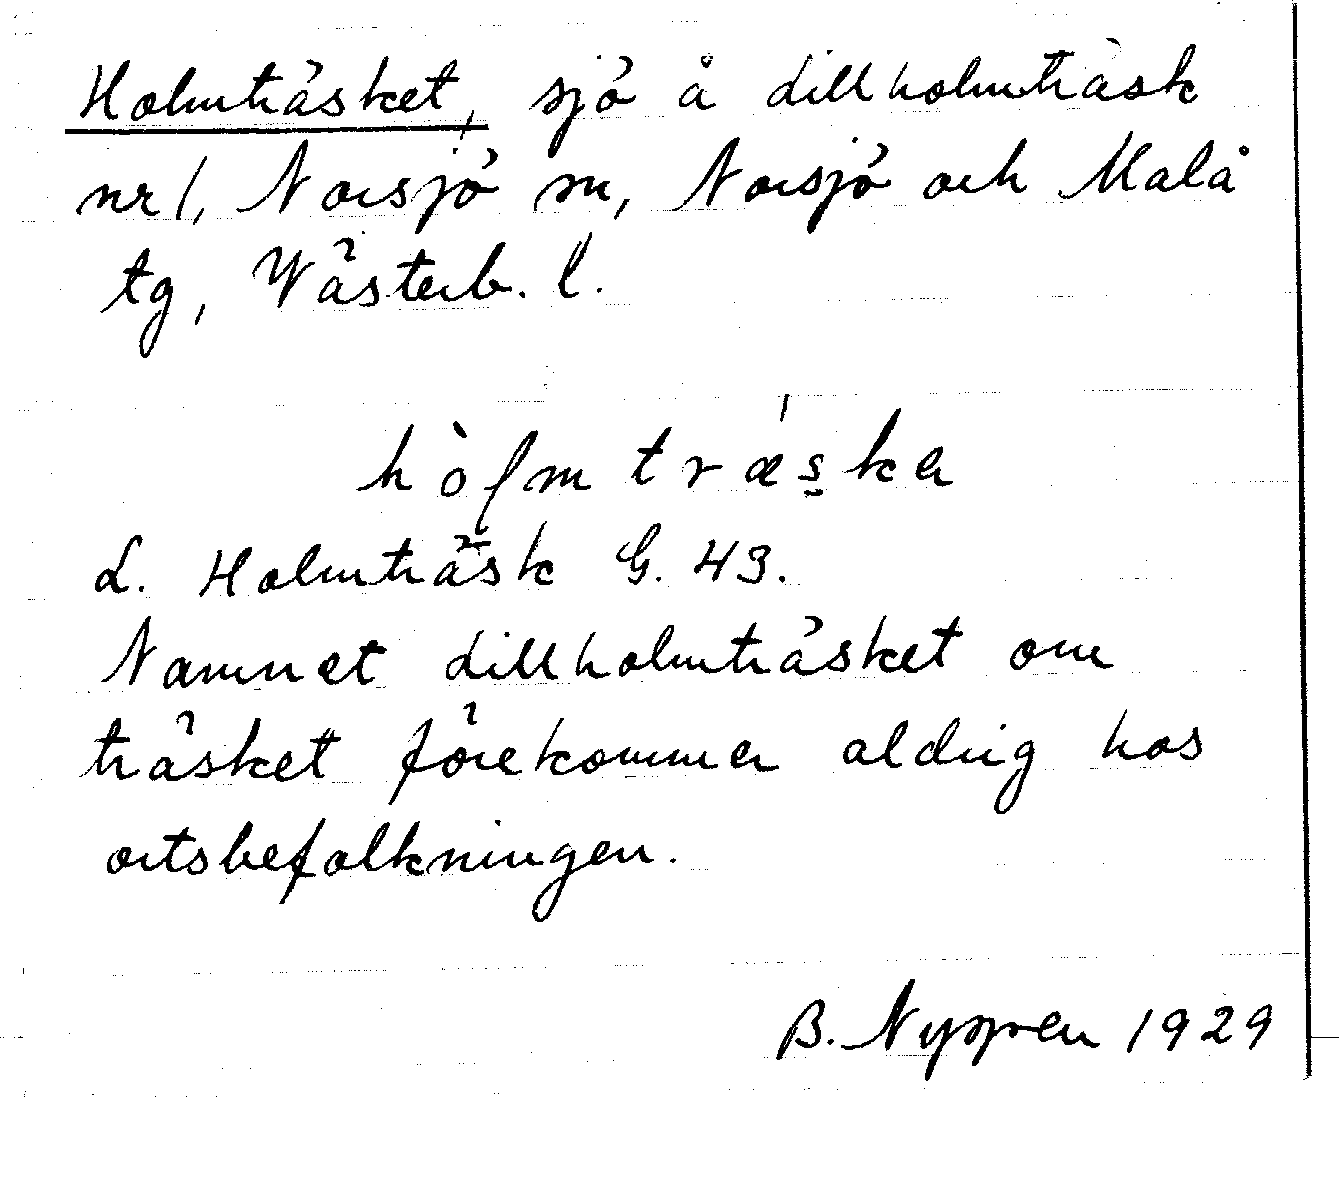 Holmträsket, sjö å Lillholmträsk
nr 1, Norsjö sn, Norsjö och Malå
tg, Västerb. l.
hòlmtræ̍ska
L. Holmträsk G. 43.
Namnet Lillholmträsket om
träsket förekommer aldrig hos
ortsbefolkningen.
B. Nygren 1929